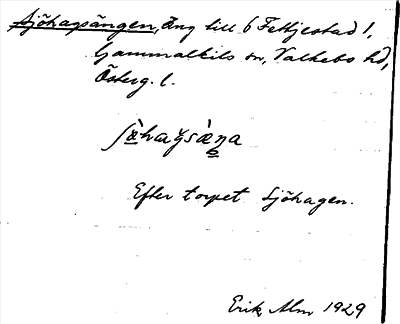 Sjöhagsängen, Äng till 6 Fettjestad 1,
Gammalkils sn, Valkebo hd,
Österg. l.
Efter torpet Sjöhagen.
Erik Alm 1929